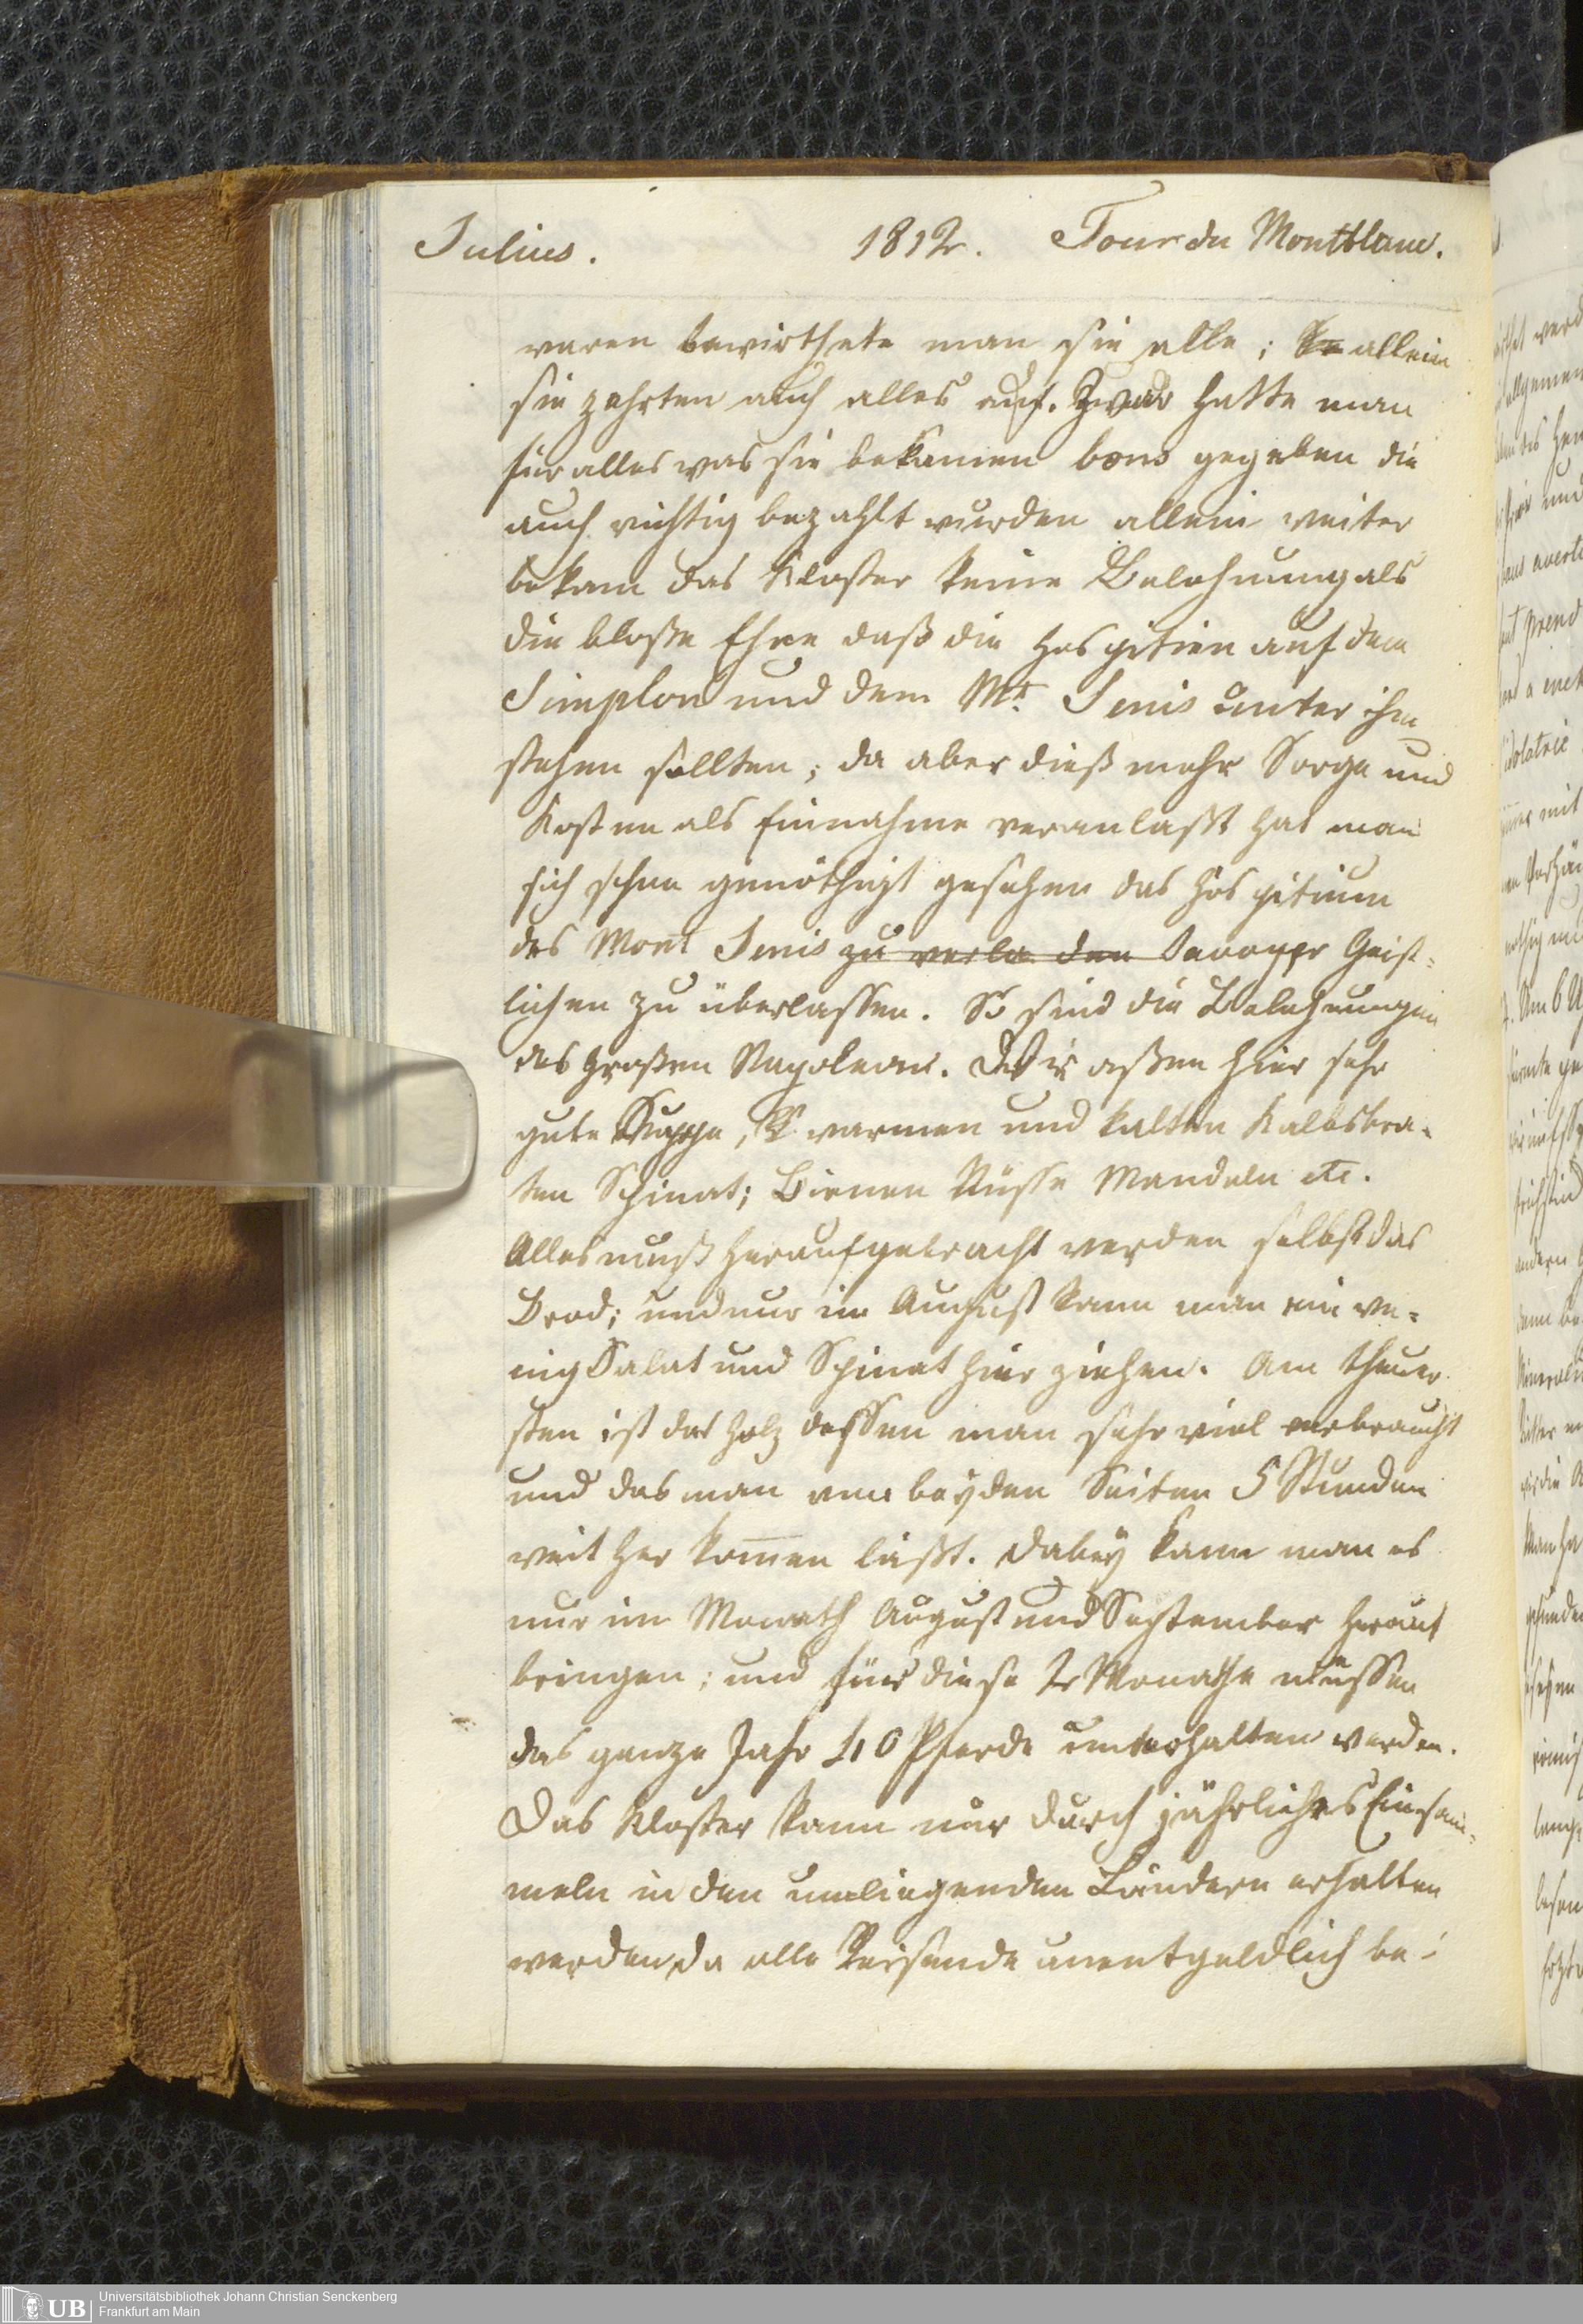 Julius. 1812. Tour du Montblanc.
waren bewirthete man sie alle; allein
sie zehrten auch alles auf. Zwar hatte man
für alles was sie bekamen bons gegeben die
auch richtig bezahlt wurden allein weiter
bekam das Kloster keine Belohnung als
die blosse Ehre daß die Hospitien auf dem
Simplon und dem Mt. Senis unter ihm
stehen sollten; da aber dieß mehr Sorge und
Kosten als Einnahme veranlaßt hat man
sich schon genöthigt gesehen das Hospitium
des Mont Senis zu verla den Savoyer Geist=
lichen zu überlassen. So sind die Belohnungen
des großen Napoleons. Wir aßen hier sehr
gute Suppe, warmen und kalten Kalbsbra=
ten Spinat; Birnen Nüsse Mandeln etc.
Alles muß heraufgebracht werden selbst das
Brod; und nur im August kann man ein we=
nig Salat und Spinat hier ziehen. Am theuer
sten ist das Holz dessen man sehr viel verbraucht
und das man von beyden Seiten 5 Stunden
weit her kom̅en läßt. Dabey kann man es
nur im Monath August und September herauf
bringen; und für diese 2 Monathe müssen
das ganze Jahr 40 Pferde unterhalten werden.
Das Kloster kann nur durch jährliches Einsam=
meln in den umliegenden Ländern erhalten
werden, da alle Reisende unentgeldlich be=
UB Universitätsbibliothek Johann Christian Senckenberg
Frankfurt am Main